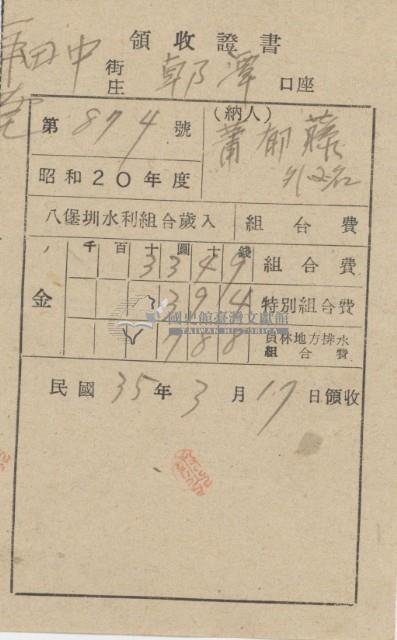 領收證書
田中
街
庄
郭潭
口座
第 874 號
(納人)
蕭郁藤
外2名
昭和20年度
八堡圳水利組合歲入
組合費
千百十圓十錢
金
3349
組合費
394
特別組合費
788
員林地方排水
組合費
國史館臺灣文獻館
TAIWAN HISTORICA
民國35年3月17日領收